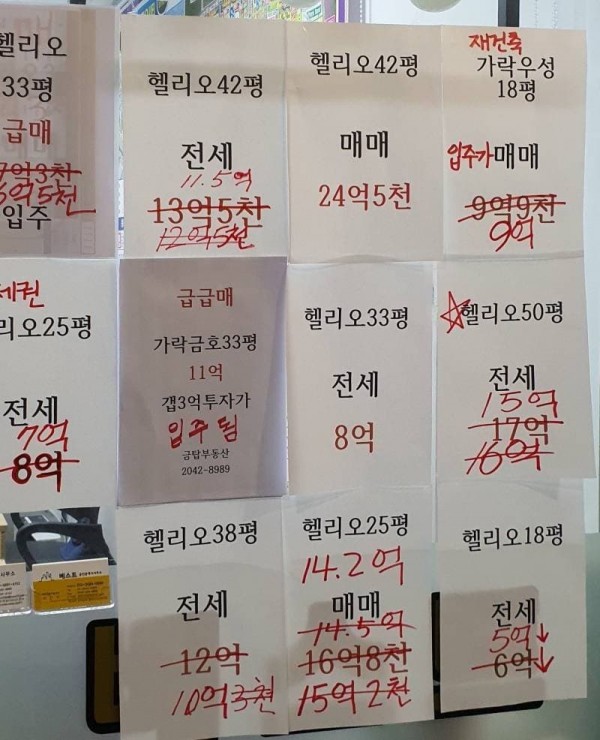 헬리오
33평
급매
7억3천
6억5천
입주
헬리오42평
전세
11.5억
13억5천
12억5천
헬리오42평
매매
24억5천
재건축
가락우성
18평
입주가 매매
9억9천
9억
세권
리오25평
전세
7억
8억
급급매
가락금호33평
11억
갭3억투자가
입주 됨
금탑부동산
2042-8989
헬리오33평
전세
8억
☆헬리오50평
전세
15억
17억
16억
헬리오38평
전세
12억
10억3천
헬리오25평
14.2억
매매
14.5억
16억8천
15억2천
헬리오18평
전세
5억↓
6억↓
베스트